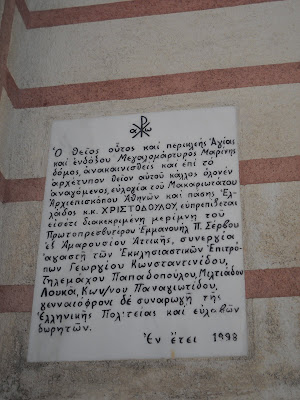 Ὁ θεῖος οὗτος καί περικλεής Ἁγίας
καί ἐνδόξου Μεγαλομάρτυρος Μαρίνης
δόμος, ἀνακαινισθείς καί ἐπί τό
ἀρχέτυπον θεῖον αὐτοῦ κάλλος ὁλονέν
ἀναγόμενος, εὐλογίᾳ τοῦ Μακαριωτάτου
Ἀρχιεπισκόπου Ἀθηνῶν καί πάσης Ἑλ-
λάδος κ.κ. ΧΡΙΣΤΟΔΟΥΛΟΥ, εὐπρεπίζεται
εἰσέτι διακεκριμένῃ μερίμνῃ τοῦ
Πρωτοπρεσβυτέρου Ἐμμανουήλ Π. Σέρβου
ἐξ Ἀμαρουσίου Ἀττικῆς, συνεργίᾳ
ἀγαστῇ τῶν Ἐκκλησιαστικῶν Ἐπιτρό-
πων Γεωργίου Κωνσταντινίδου,
Τηλεμάχου Παπαδοπούλου, Μιλτιάδου
Λουκᾶ, Κων/νου Παναγιωτίδου,
γενναιόφρονι δέ συναρωγῇ τῆς
Ἑλληνικῆς Πολιτείας καί εὐλαβῶν
δωρητῶν.
Ἐν ἔτει 1998